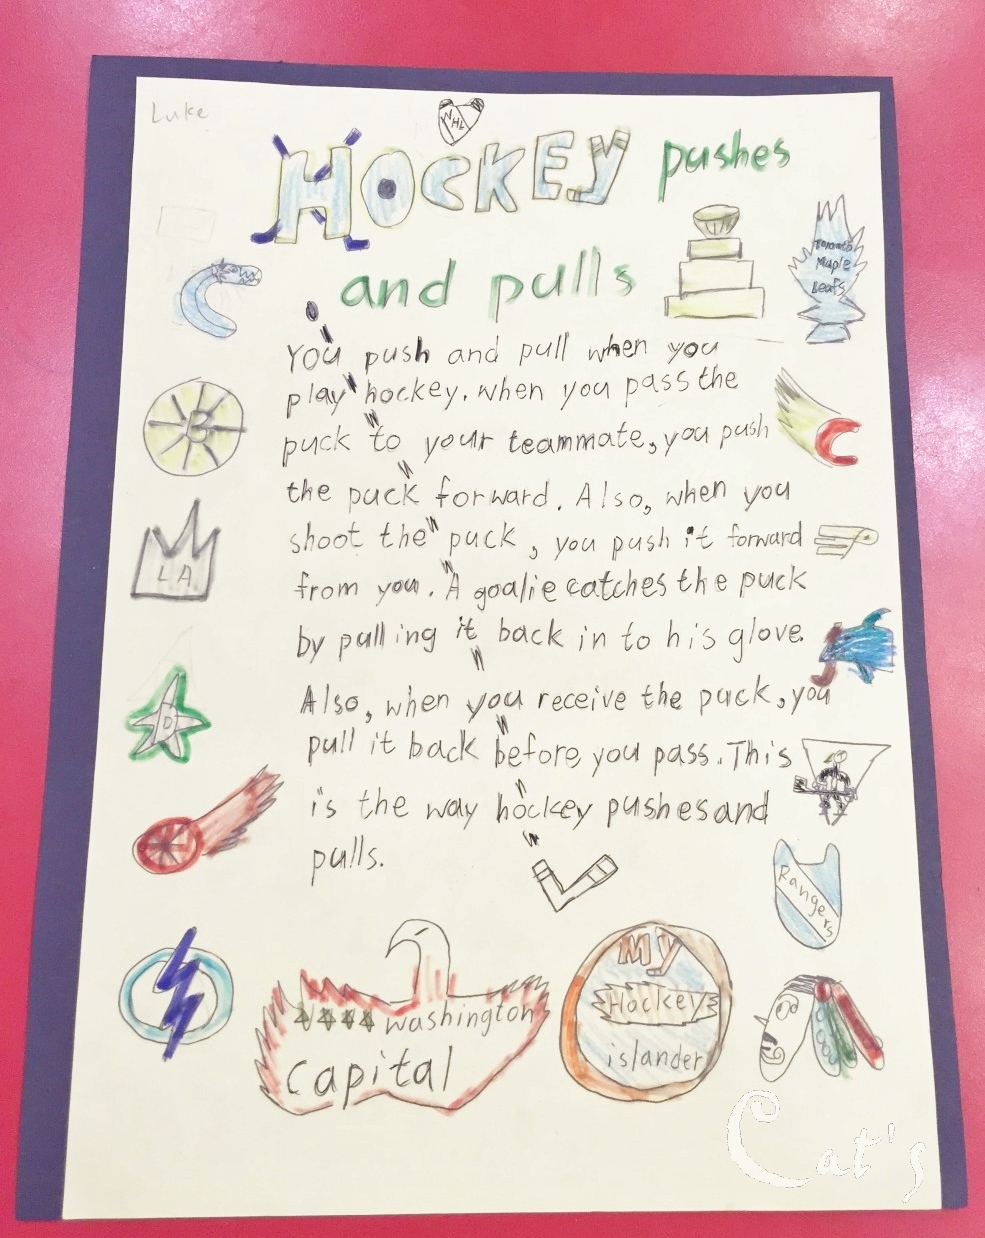 Luke
NHL
HOCKEY pushes
and pulls
Toronto
Maple
Leafs
You push and pull when you
play hockey. when you pass the
puck to your teammate, you push
the puck forward. Also, when you
shoot the puck, you push it forward
from you. A goalie catches the puck
by pulling it back in to his glove.
Also, when you receive the puck, you
pull it back before you pass. This
is the way hockey pushes and
pulls.
B
C
LA
D
Rangers
washington
capital
My
Hockey
islander
Cat's